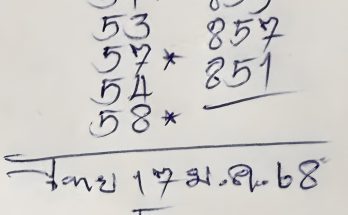 53 857
57* 851
54
58*
17 ม.ค. 68